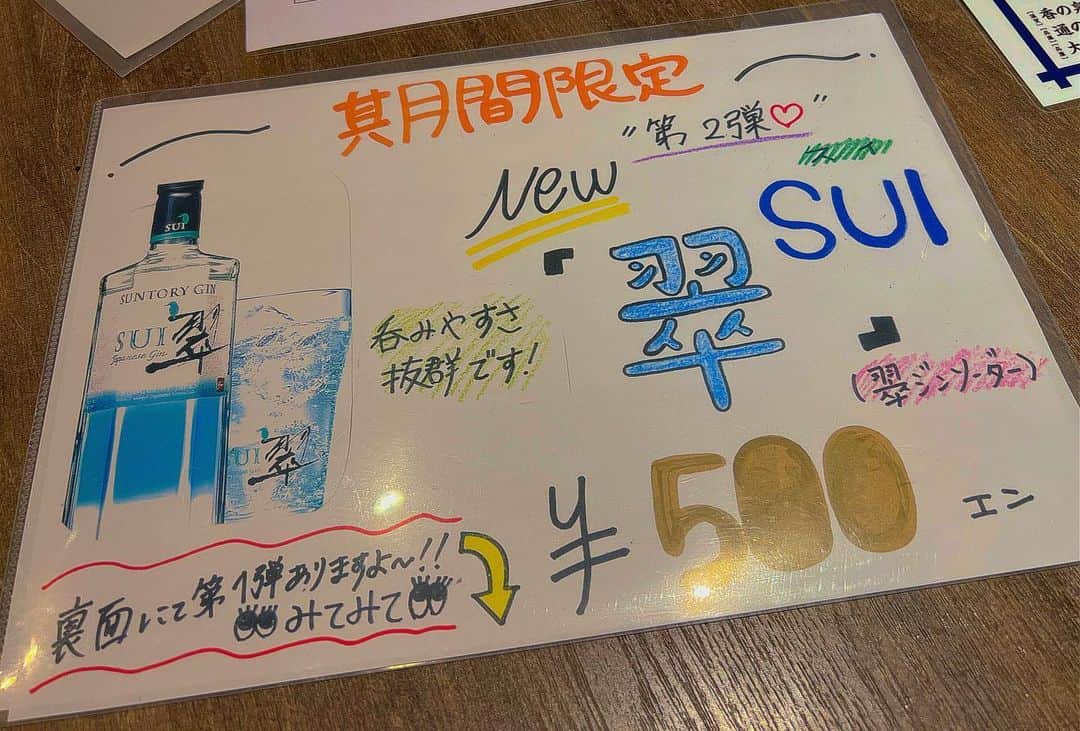 期間限定
"第2弾♡"
New
スイ
SUI
「翠」
(翠ジンソーダー)
呑みやすさ
抜群です!
¥500エン
裏面にて第1弾ありますよ〜!!
みてみて
SUI
SUNTORY GIN
SUI 翠
Japanese Gin
SUI 翠